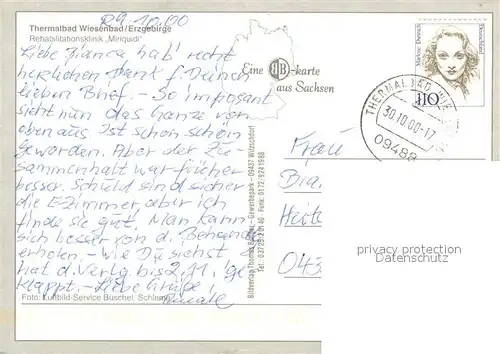 29.10.00
Thermalbad Wiesenbad/Erzgebirge
Rehabilitationsklinik „Miriquidi"
Liebe Bianca hab' recht
herzlichen Dank f. Deinen
lieben Brief. - So imposant
sieht nun das Ganze von
oben aus. Ist schon schön
geworden. Aber der Zu-
sammenhalt war früher
besser. Schuld sind sicher
die E-Zimmer, aber ich
finde sie gut. Man kann
sich besser von d. Behandl.
erholen. - Wie Du siehst
hat d. Verlg. bis 2.11. ge-
klappt. - Liebe Grüße
Foto: Luftbild-Service Büschel, Schlema
Eine BB-karte
aus Sachsen
Bildverlag Thomas Böttger - Gewerbepark - 09437 Witzschdorf
Tel.: 03725/20140 - Funk: 0172/9241988
Marlene Dietrich
Deutschland
110
THERMALBAD WIE
30.10.00-17
09488
Frau
Bia
043
privacy protection
Datenschutz